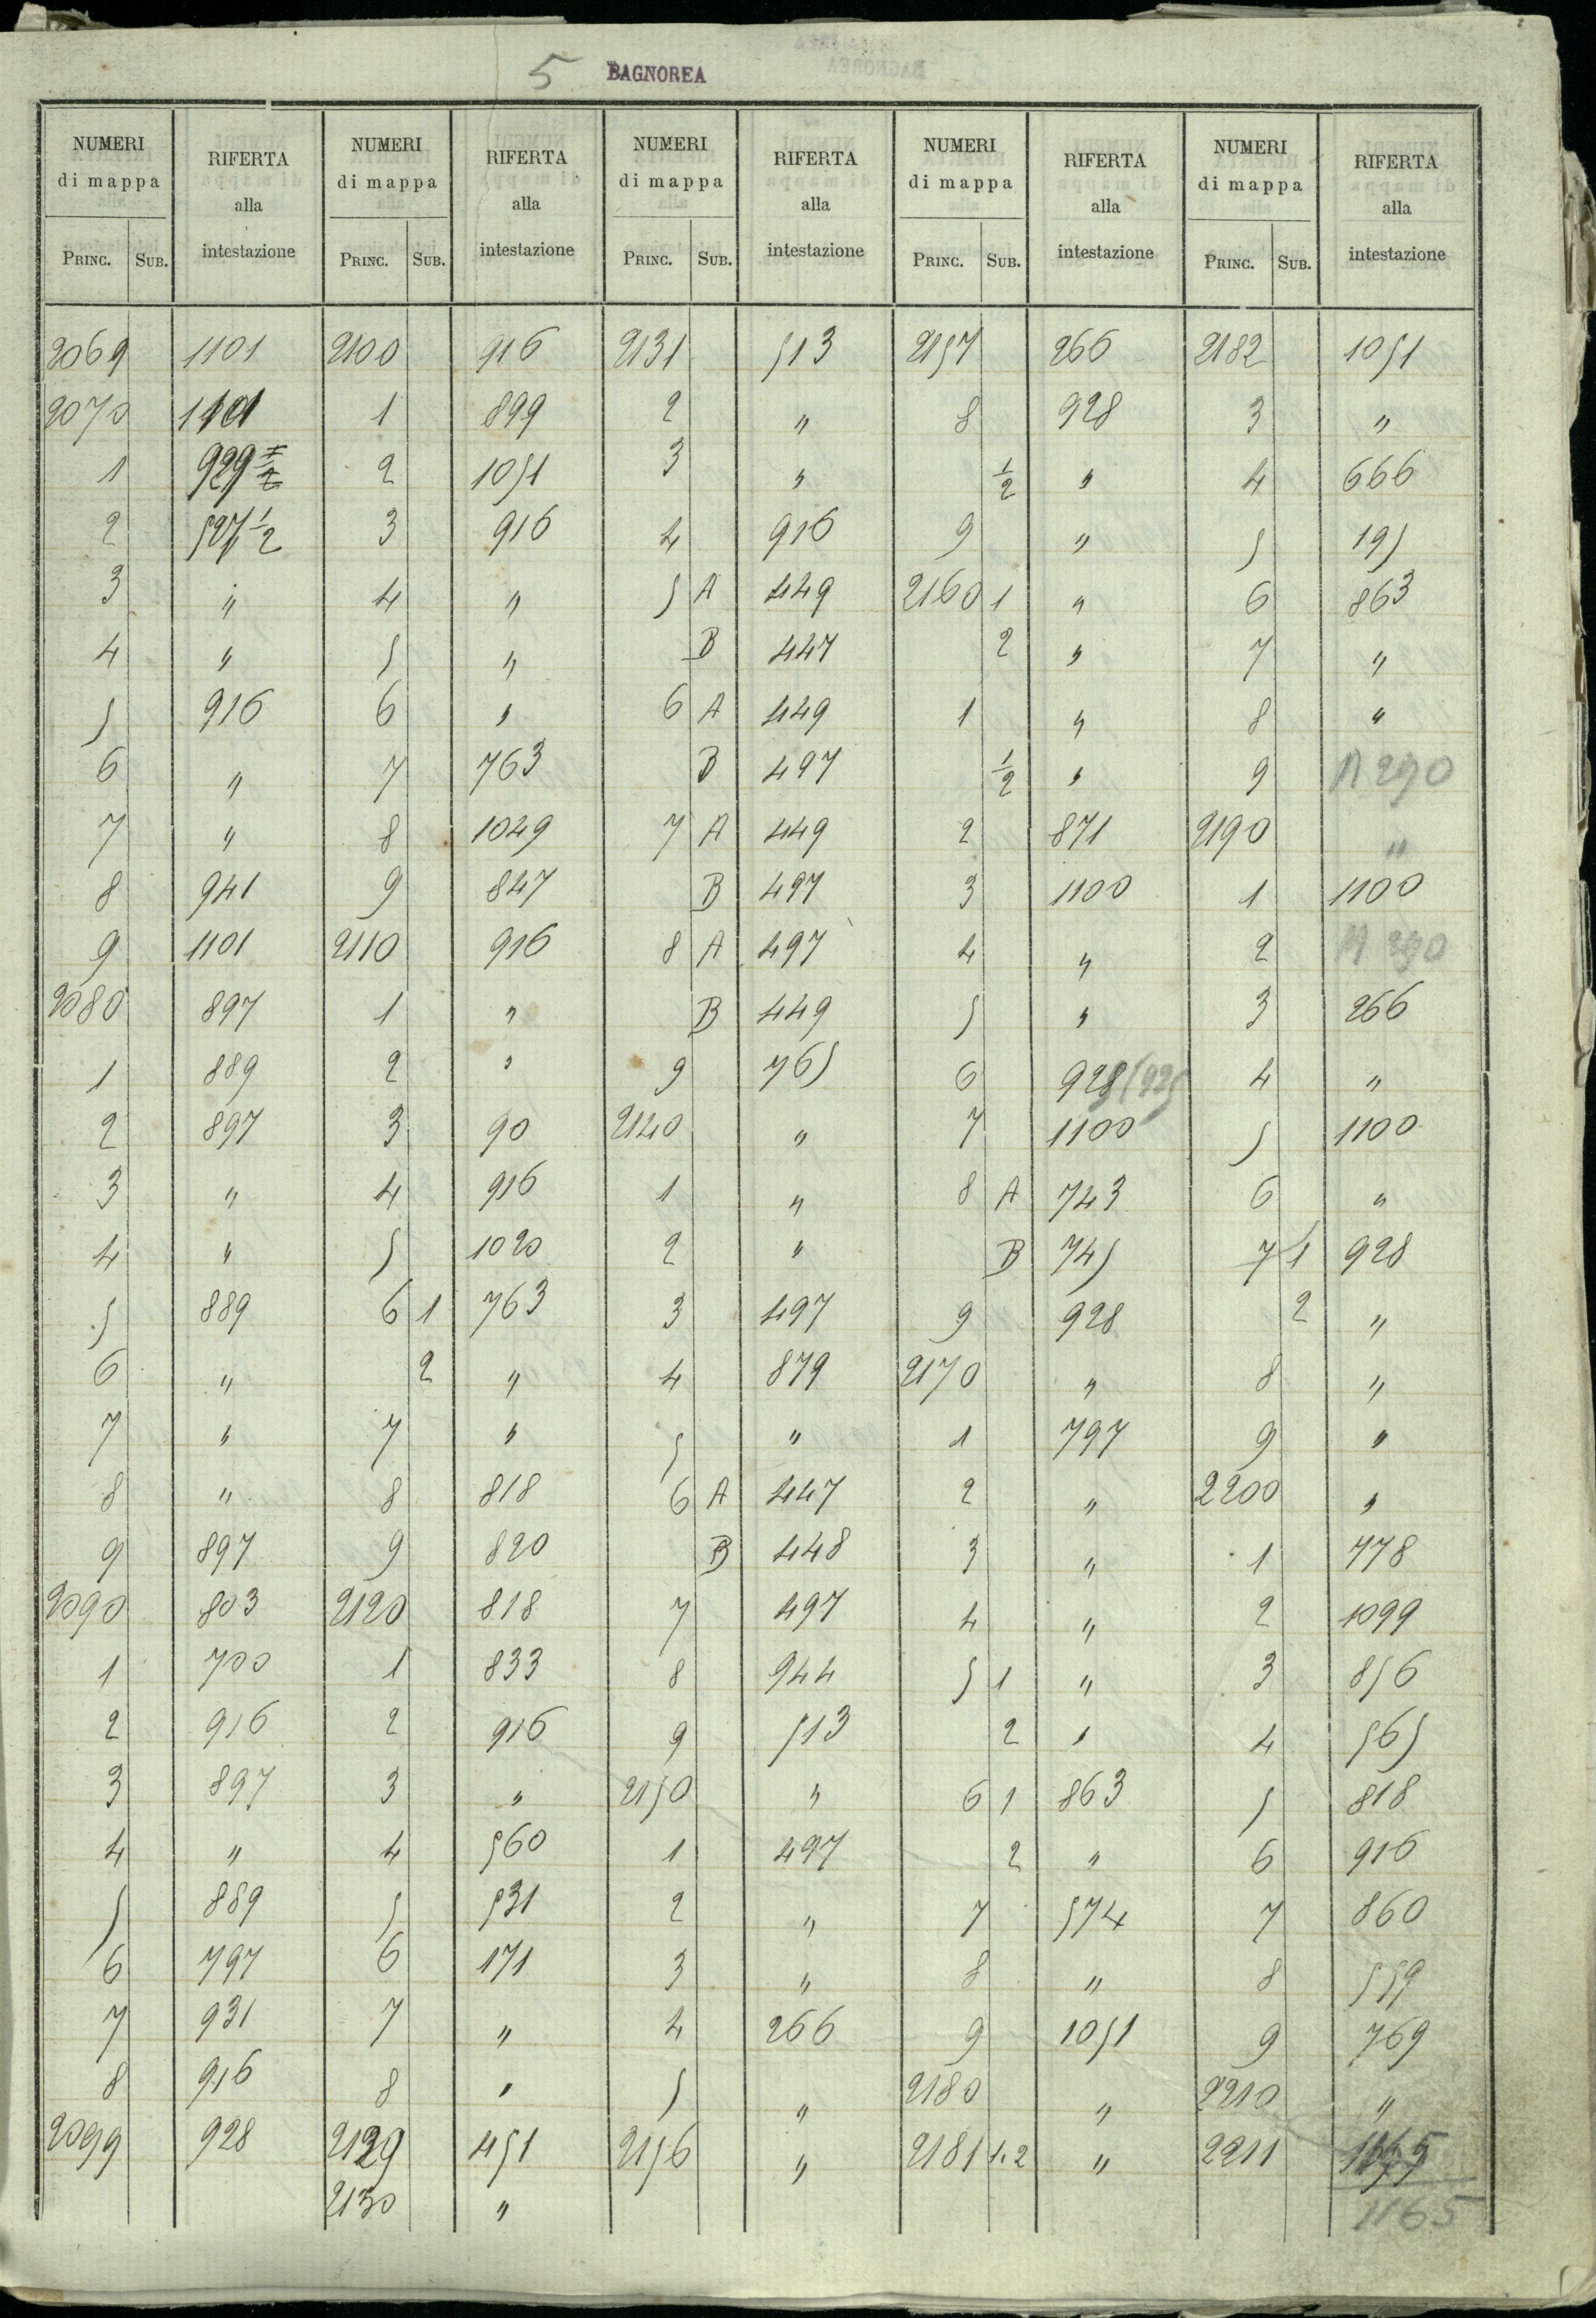 5 BAGNOREA
NUMERI di mappa RIFERTA alla intestazione NUMERI di mappa RIFERTA alla intestazione NUMERI di mappa RIFERTA alla intestazione NUMERI di mappa RIFERTA alla intestazione NUMERI di mappa RIFERTA alla intestazione
PRINC. SUB. PRINC. SUB. PRINC. SUB. PRINC. SUB. PRINC. SUB.
2069 1101 2100 916 2131 513 2157 266 2182 1051
2070 1101 1 899 2 " 8 928 3 "
1 929 2 1051 3 " 1/2 " 4 666
2 527 1/2 3 916 4 916 9 " 5 195
3 " 4 " 5 A 449 2160 1 " 6 863
4 " 5 " B 447 2 " 7 "
5 916 6 " 6 A 449 1 " 8 "
6 " 7 763 B 497 1/2 " 9 A 290
7 " 8 1049 7 A 449 2 871 2190 "
8 941 9 847 B 497 3 1100 1 1100
9 1101 2110 916 8 A 497 4 " 2 A 290
2080 897 1 " B 449 5 " 3 266
1 889 2 " 9 765 6 928 (925 4 "
2 897 3 90 2140 " 7 1100 5 1100
3 " 4 916 1 " 8 A 743 6 "
4 " 5 1020 2 " B 745 7 1 928
5 889 6 1 763 3 497 9 928 2 "
6 " 2 " 4 879 2170 " 8 "
7 " 7 " 5 " 1 797 9 "
8 " 8 818 6 A 447 2 " 2200 "
9 897 9 820 B 448 3 " 1 778
2090 803 2120 818 7 497 4 " 2 1099
1 700 1 833 8 944 5 1 " 3 856
2 916 2 916 9 513 2 " 4 565
3 897 3 " 2150 " 6 1 863 5 818
4 " 4 560 1 497 2 " 6 916
5 889 5 531 2 " 7 574 7 860
6 797 6 171 3 " 8 " 8 559
7 931 7 " 4 266 9 1051 9 769
8 916 8 " 5 " 2180 " 2210 "
2099 928 2129 451 2156 " 2181 1.2 " 2211
2130 " 1165